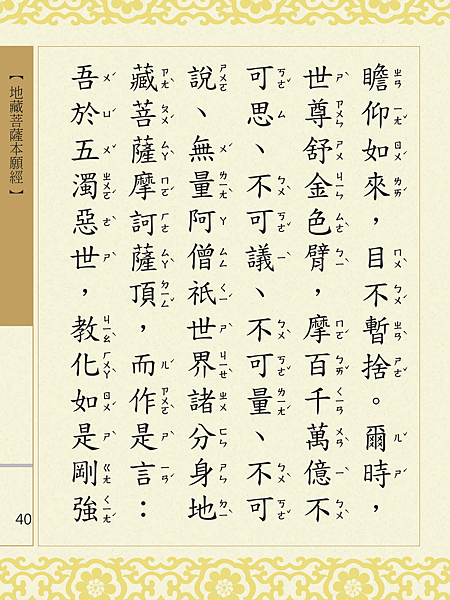 瞻仰如來，目不暫捨。爾時，
世尊舒金色臂，摩百千萬億不
可思、不可議、不可量、不可
說、無量阿僧祇世界諸分身地
藏菩薩摩訶薩頂，而作是言：
吾於五濁惡世，教化如是剛強
【地藏菩薩本願經】
40